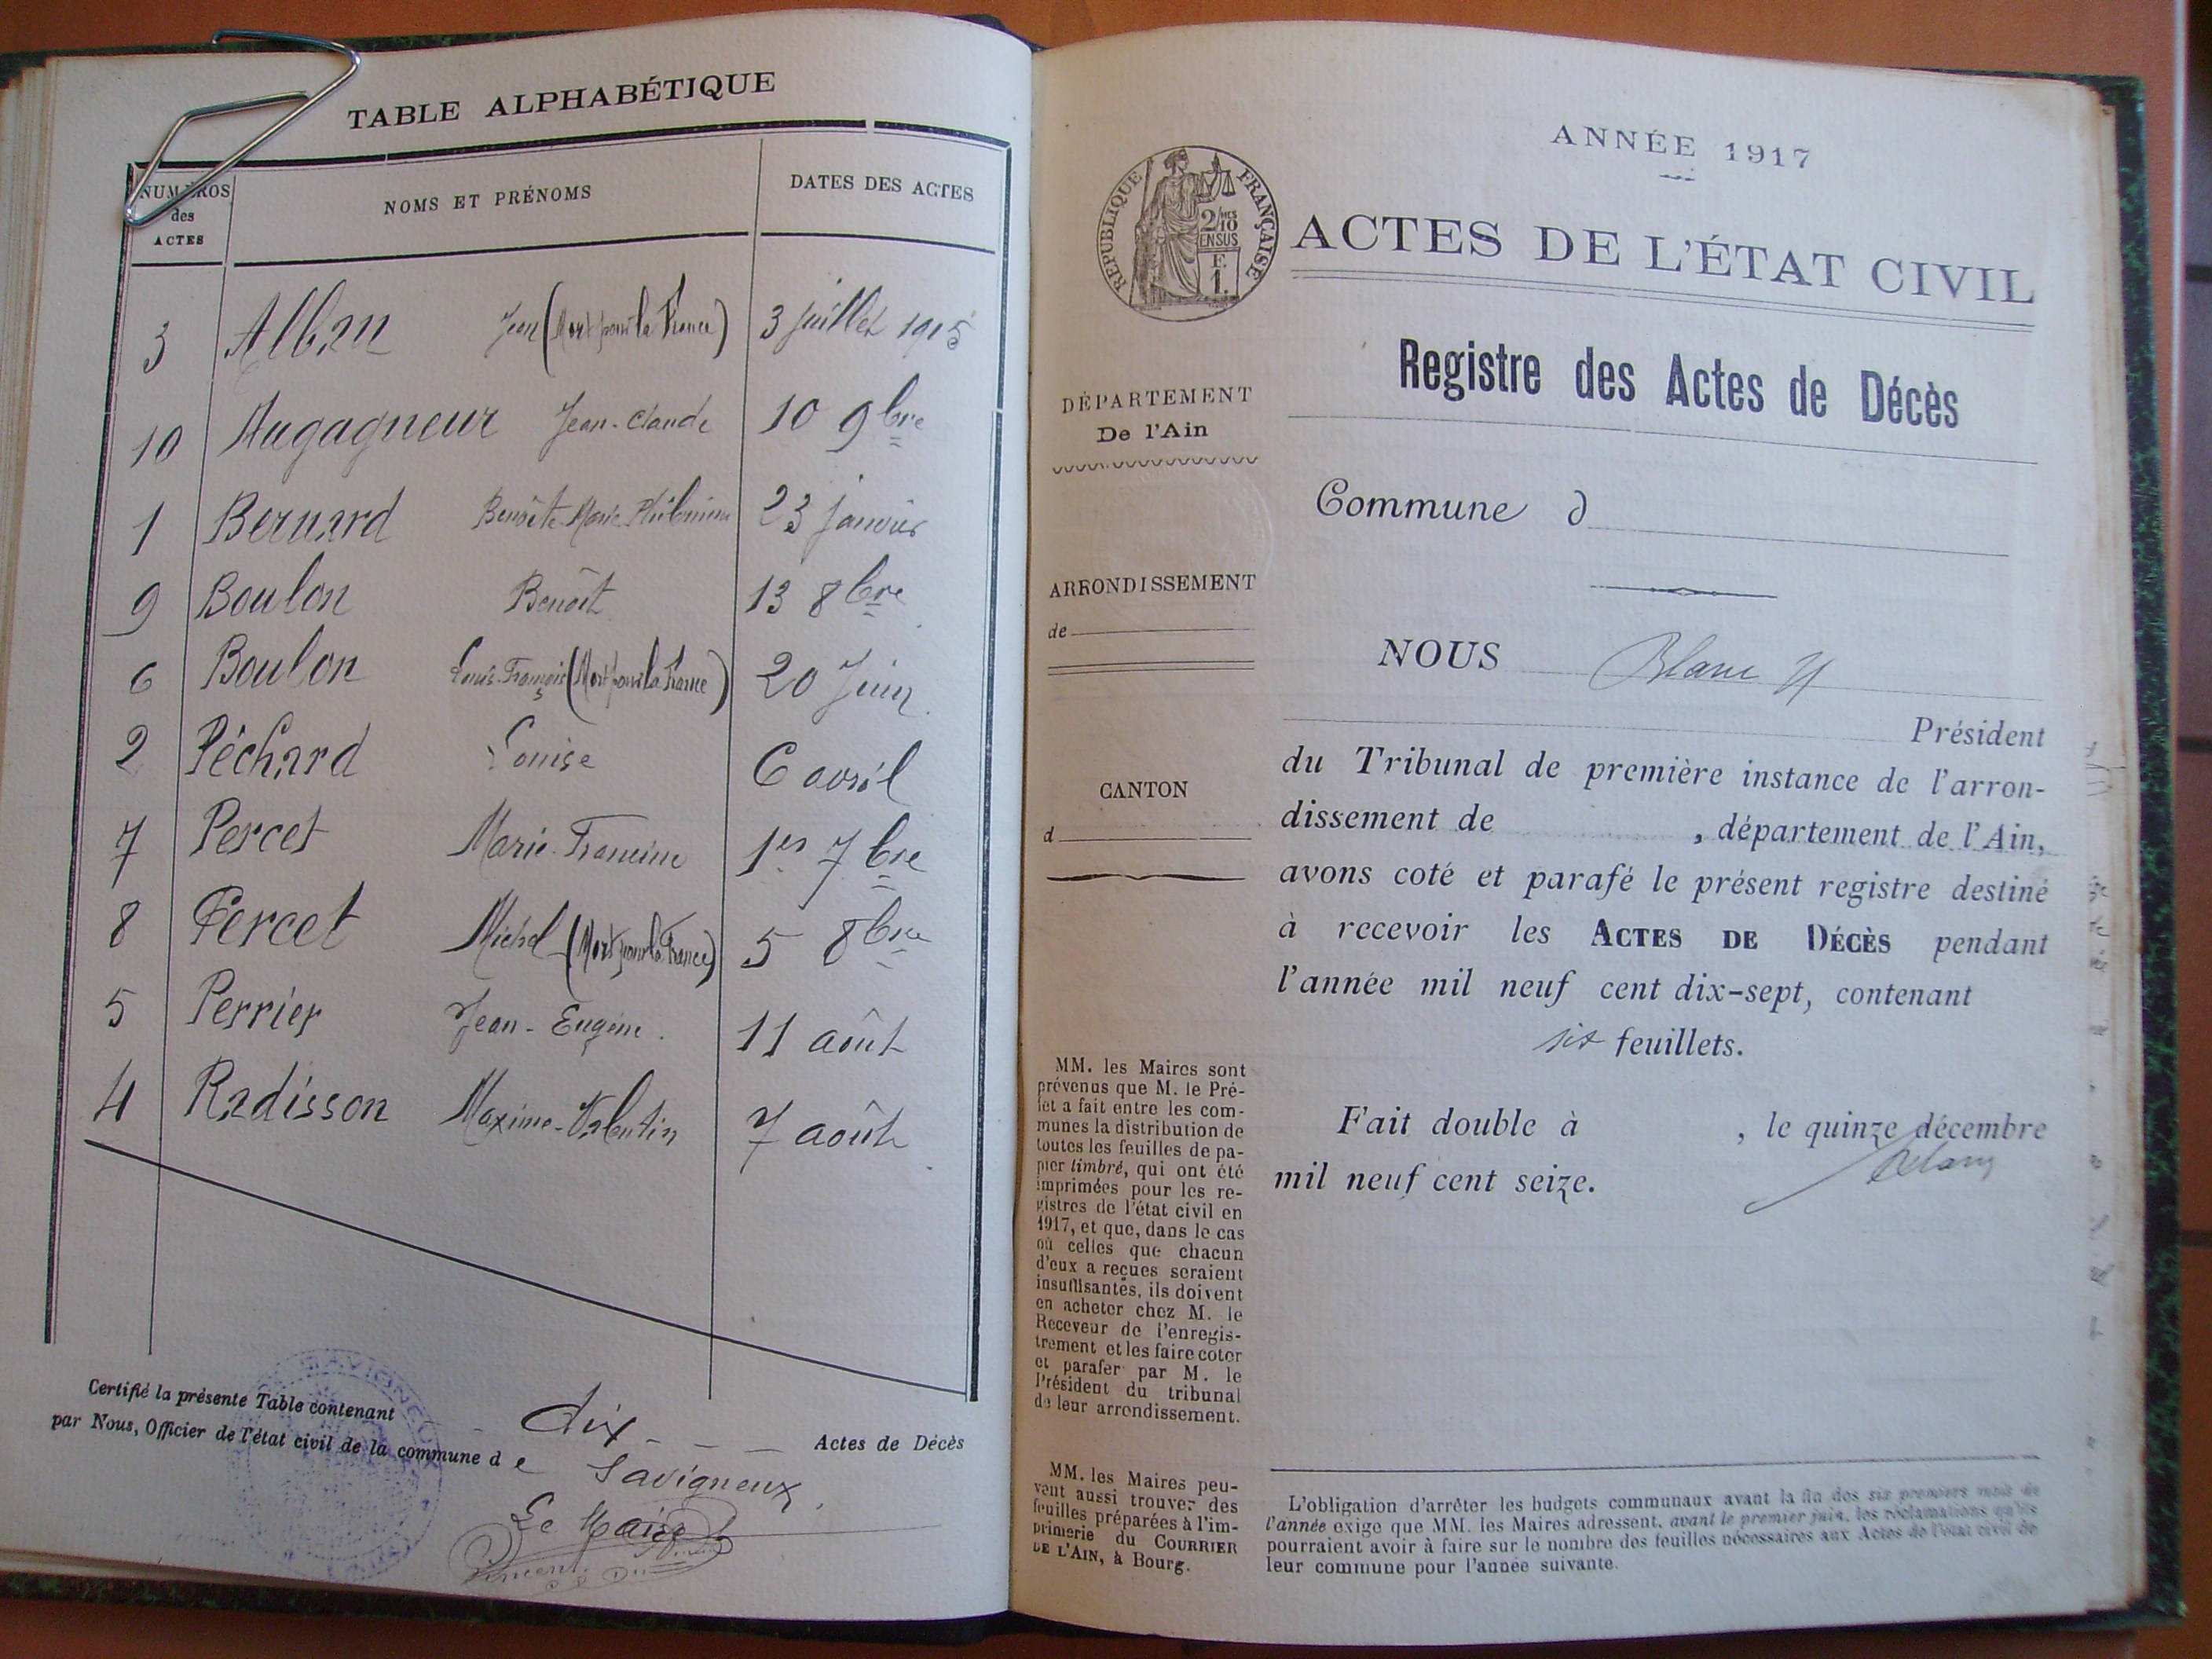 TABLE ALPHABÉTIQUE
NUMÉROS des ACTES NOMS ET PRÉNOMS DATES DES ACTES
3 Alban Jean (Mort pour la France) 3 juillet 1915
10 Augagneur Jean-Claude 10 9bre
1 Bernard Benoîte Marie Philomène 23 janvier
9 Boulon Benoît 13 8bre
6 Boulon Louis-François (Mort pour la France) 20 Juin
2 Péchard Louise 6 avril
7 Percet Marie Francine 1er 7bre
8 Percet Michel (Mort pour la France) 5 8bre
5 Perrier Jean-Eugène 11 août
4 Radisson Maxime-Valentin 7 août
Certifié la présente Table contenant dix Actes de Décès
par Nous, Officier de l'état civil de la commune de Savigneux
Le Maire
ANNÉE 1917
RÉPUBLIQUE FRANÇAISE
2/MES
10
EN SUS
F.
1.
ACTES DE L'ÉTAT CIVIL
Registre des Actes de Décès
DÉPARTEMENT
De l'Ain
Commune d
ARRONDISSEMENT
de
NOUS Blanc
Président
du Tribunal de première instance de l'arron-
dissement de , département de l'Ain,
avons coté et parafé le présent registre destiné
à recevoir les ACTES DE DÉCÈS pendant
l'année mil neuf cent dix-sept, contenant
six feuillets.
Fait double à , le quinze décembre
mil neuf cent seize.
Blanc
CANTON
d
MM. les Maires sont
prévenus que M. le Pré-
fet a fait entre les com-
munes la distribution de
toutes les feuilles de pa-
pier timbré, qui ont été
imprimées pour les re-
gistres de l'état civil en
1917, et que, dans le cas
où celles que chacun
d'eux a reçues seraient
insuffisantes, ils doivent
en acheter chez M. le
Receveur de l'enregis-
trement et les faire coter
et parafer par M. le
Président du tribunal
de leur arrondissement.
MM. les Maires peu-
vent aussi trouver des
feuilles préparées à l'im-
primerie du COURRIER
DE L'AIN, à Bourg.
L'obligation d'arrêter les budgets communaux avant la fin des six premiers mois de
l'année exige que MM. les Maires adressent, avant le premier juin, les réclamations qu'ils
pourraient avoir à faire sur le nombre des feuilles nécessaires aux Actes de l'état civil de
leur commune pour l'année suivante.